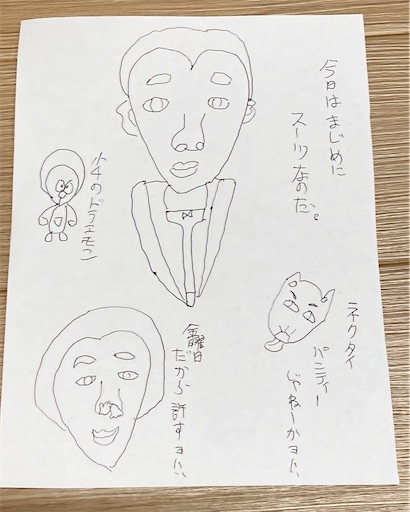 今日はまじめに
スーツなのだ。
小4のドラエモン
ネクタイ
パンティー
じゃねーかヨ!!
金曜日
だから許すヨ!!